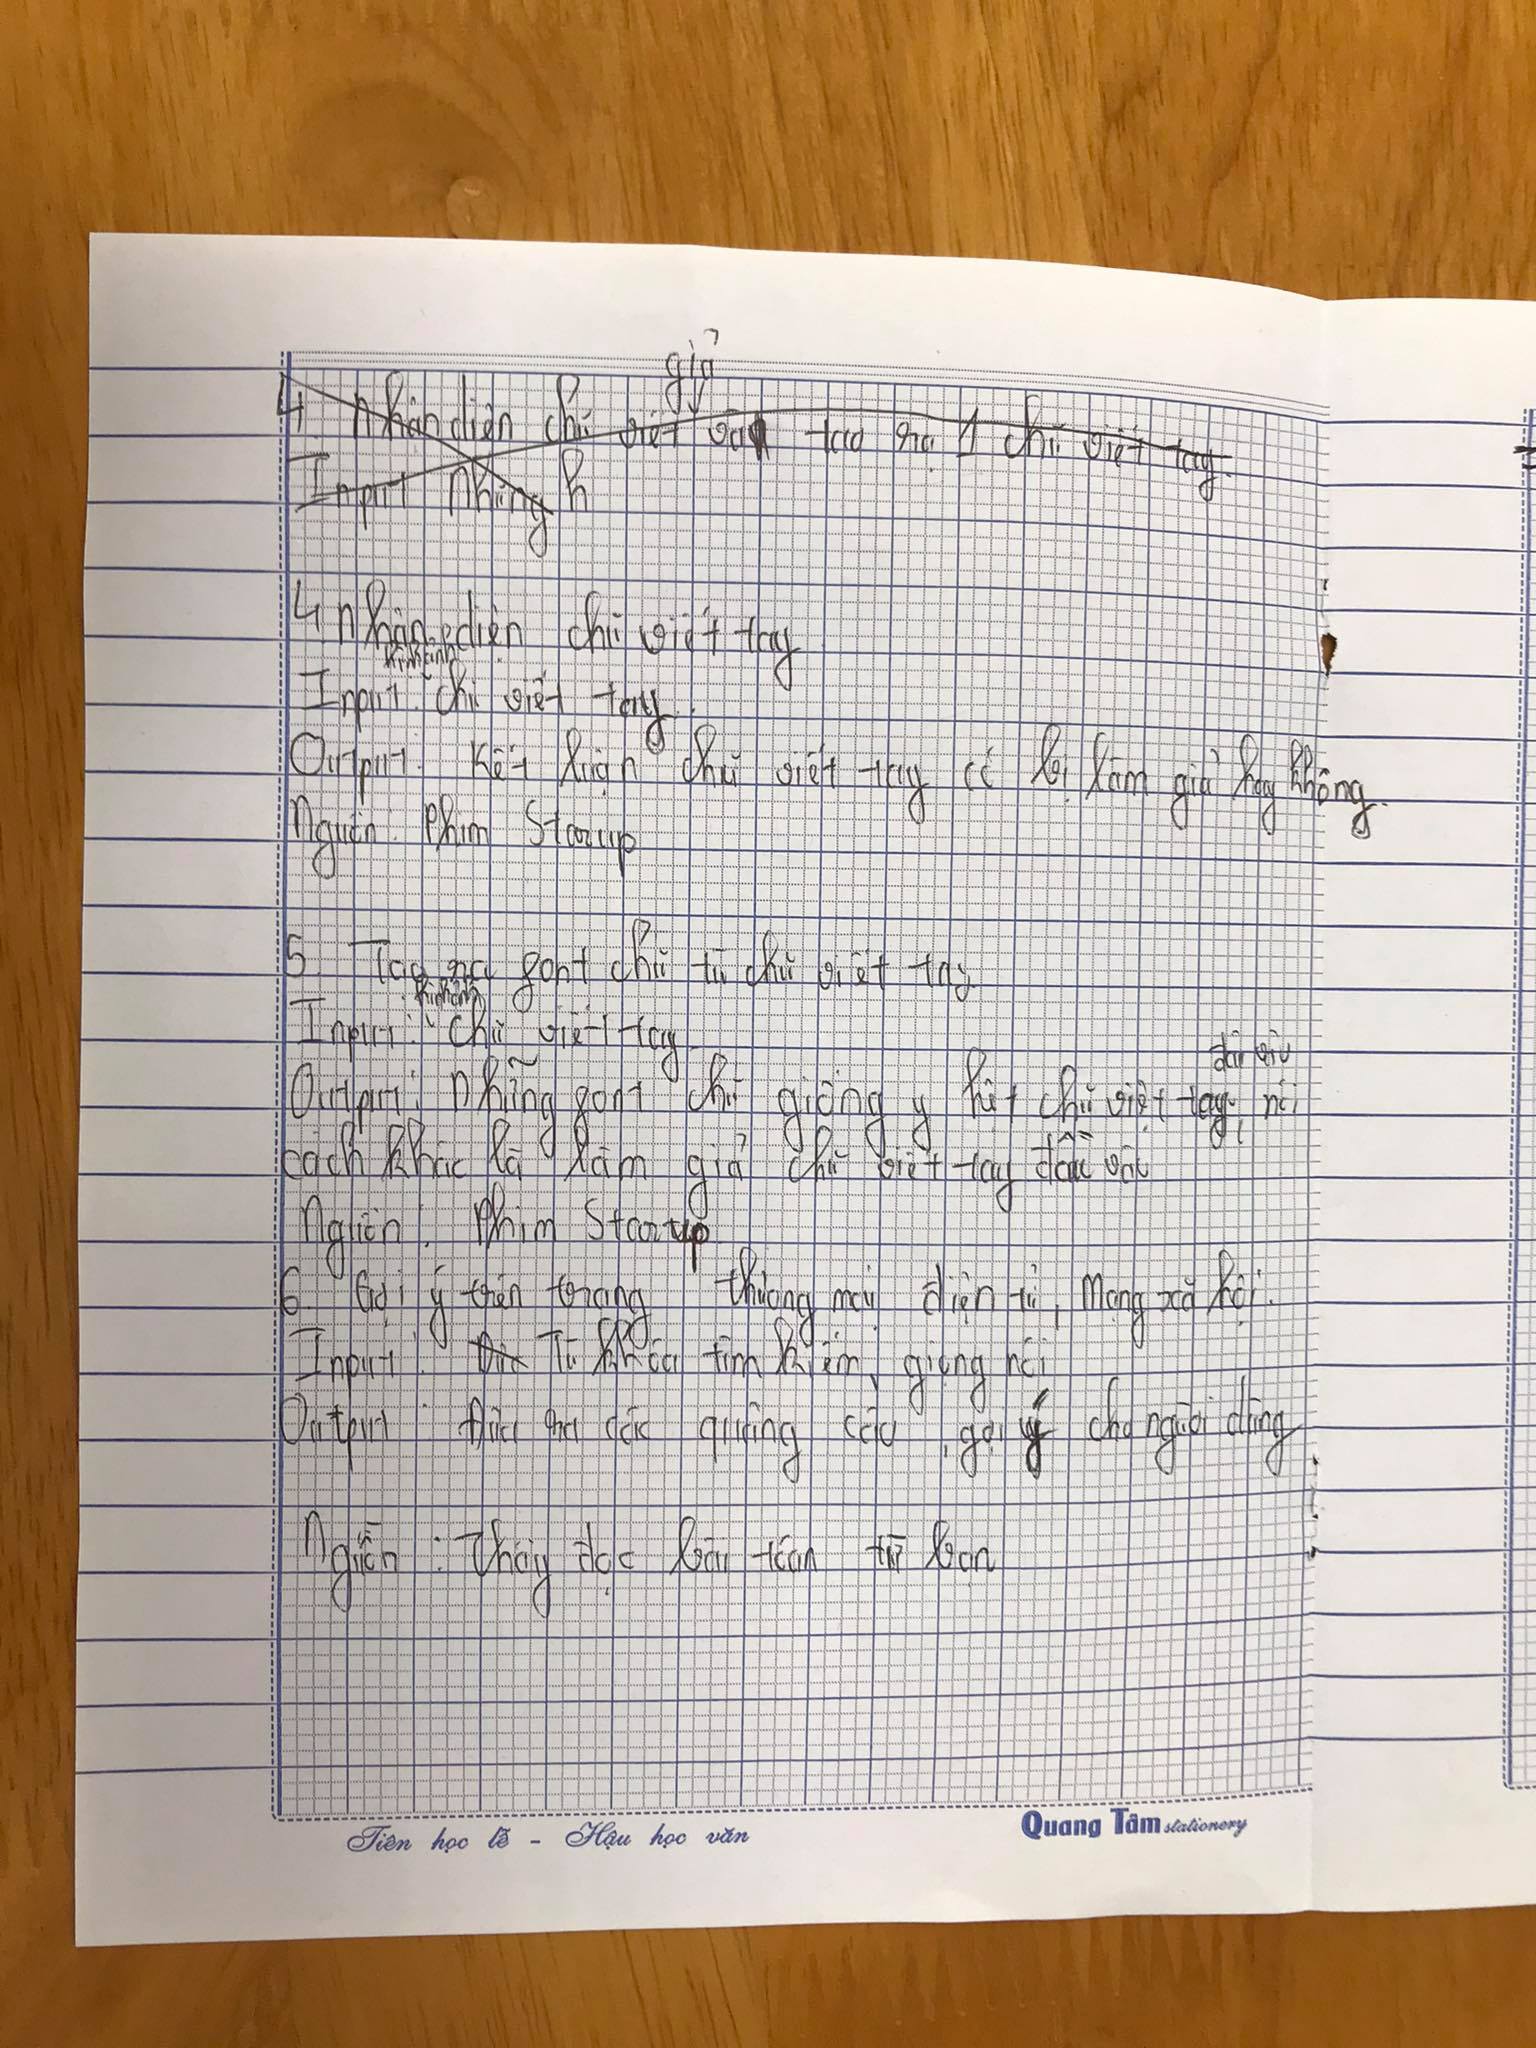 giả
4. Nhận diện chữ viết và tạo ra 1 chữ viết tay.
Input Những h
4 Nhận diện chữ viết tay
hình ảnh
Input: chữ viết tay.
Output: Kết luận chữ viết tay có bị làm giả hay không.
Nguồn: Phim Startup
5. Tạo ra font chữ từ chữ viết tay
hình ảnh
Input: chữ viết tay.
đầu vào
Output: Những font chữ giống y hệt chữ viết tay, nói
cách khác là làm giả chữ viết tay đầu vào
Nguồn: Phim Startup
6. Gợi ý trên trang thương mại điện tử, mạng xã hội.
Input: Từ khóa tìm kiếm, giọng nói
Output: Đưa ra các quảng cáo, gợi ý cho người dùng
Nguồn: Thầy đọc bài toán từ bạn
Tiên học lễ - Hậu học văn
Quang Tâm stationery